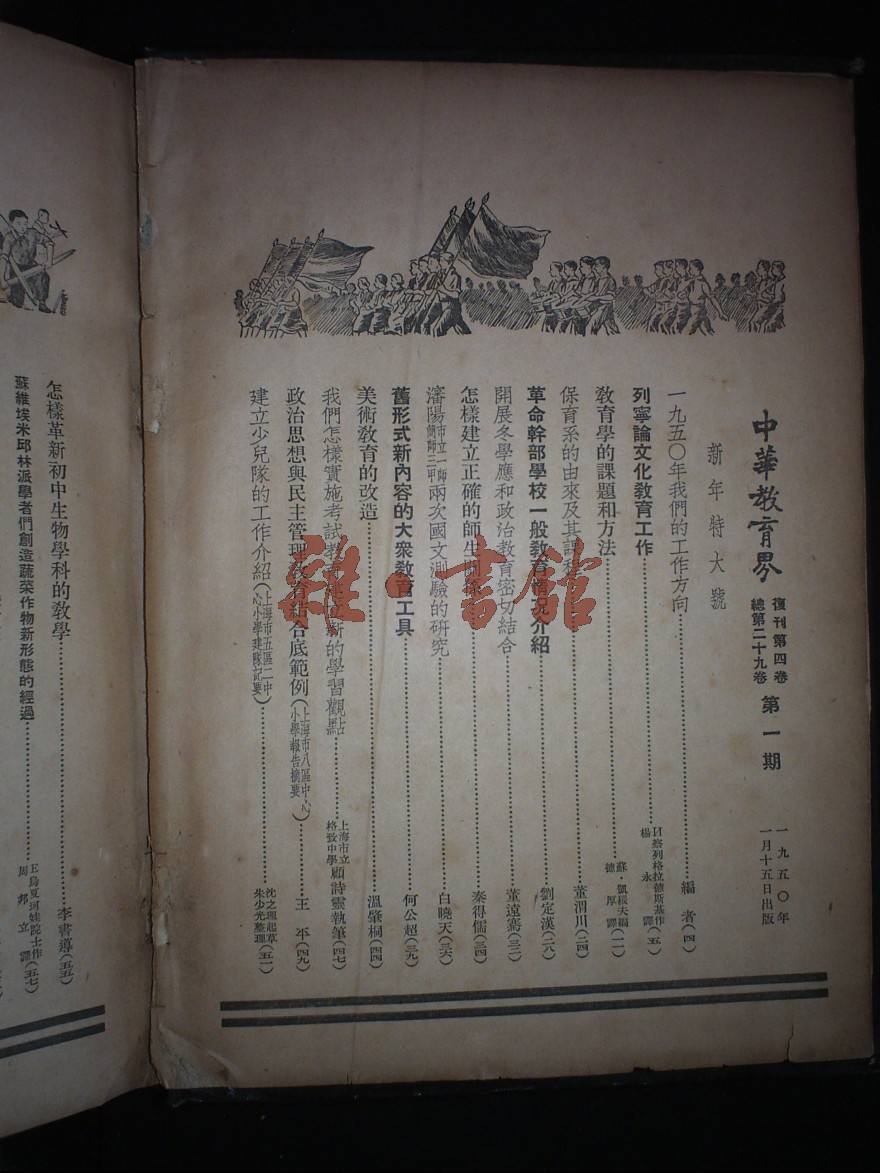 中華教育界
復刊第四卷
總第二十九卷
第一期
一九五〇年
一月十五日出版
新年特大號
一九五〇年我們的工作方向 編者(四)
列寧論文化教育工作 И·察列格拉德斯基作 楊永譯(五)
教育學的課題和方法 蘇·凱緩夫編 德厚譯(一一)
保育系的由來及其課程 董渭川(二四)
革命幹部學校一般教育情況介紹 劉定漢(二八)
開展冬學應和政治教育密切結合 董遠騫(三二)
怎樣建立正確的師生關係 秦得儒(三四)
瀋陽市立一師簡師三甲兩次國文測驗的研究 白曉天(三六)
舊形式新內容的大衆教育工具 何公超(三九)
美術教育的改造 溫肇桐(四四)
我們怎樣實施考試教育建立新的學習觀點 上海市立格致中學 顧詩靈執筆(四七)
政治思想與民主管理教育結合底範例(上海市八區中心小學報告摘要) 王平(四九)
建立少兒隊的工作介紹(上海市五區二中心小學建隊記要) 沈之理起草 朱少光整理(五一)
怎樣革新初中生物學科的教學 李書導(五五)
蘇維埃米邱林派學者們創造蔬菜作物新形態的經過 E·烏夏珂娃院士作 周邦立譯(五七)
雜·書館